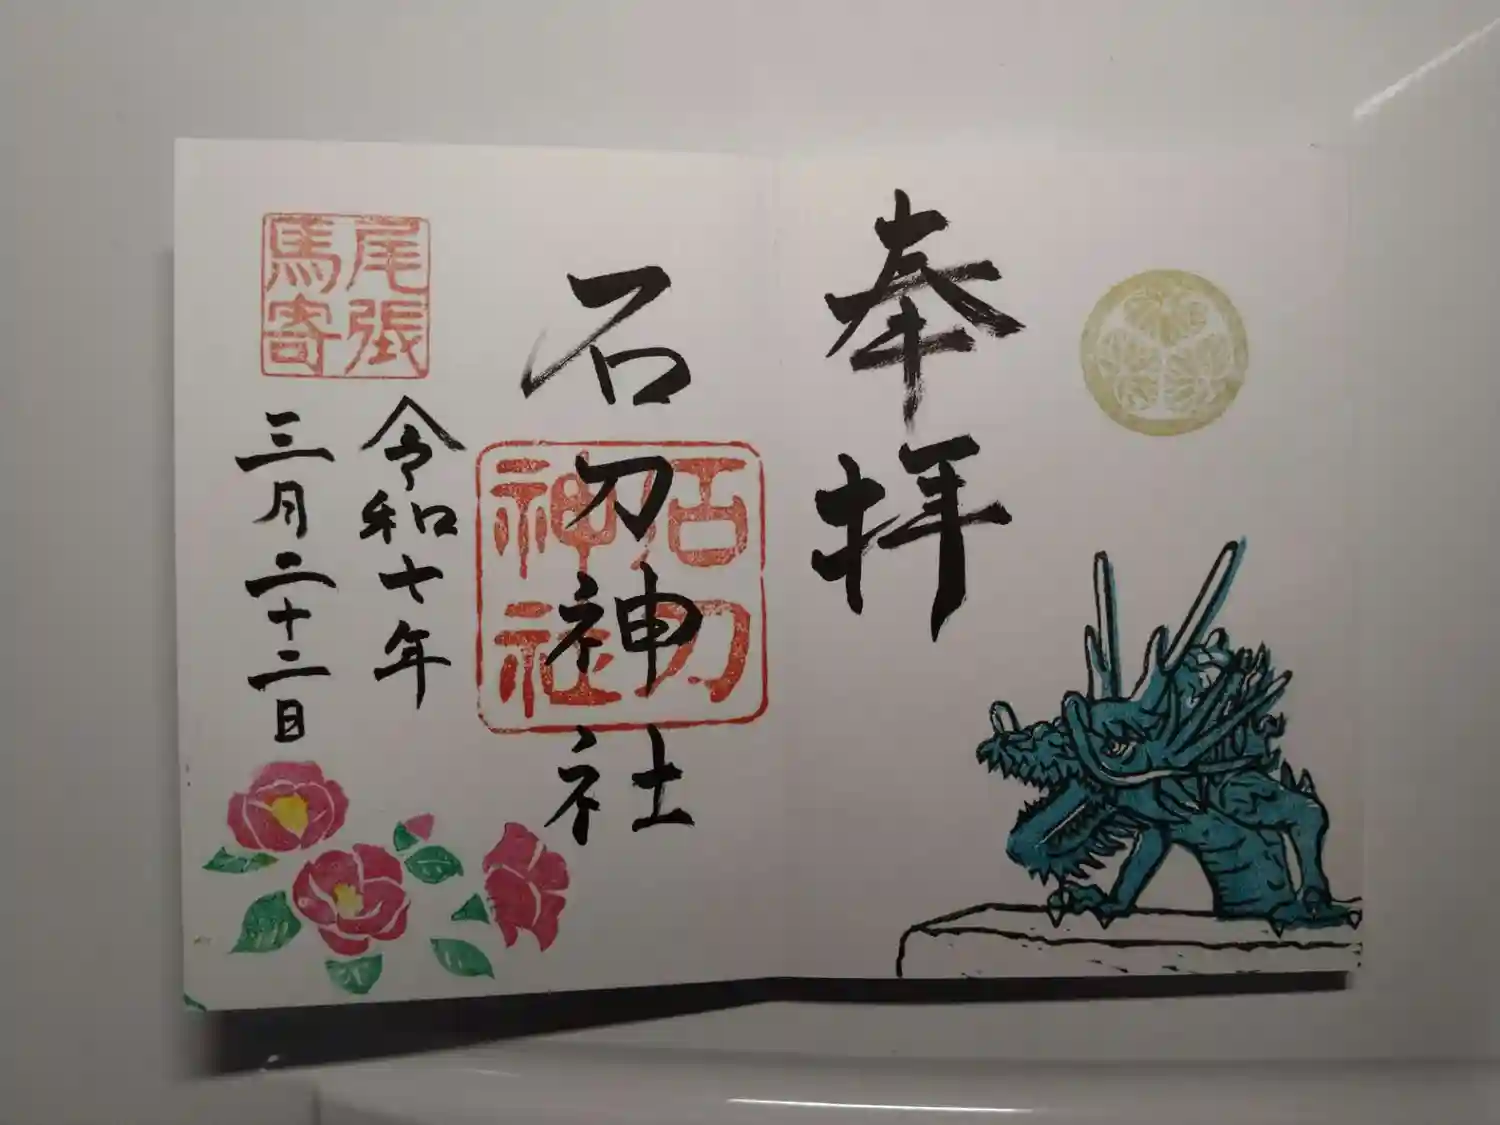 奉拝
石刀神社
石刀
神社
尾張
馬寄
令和七年
三月二十二日